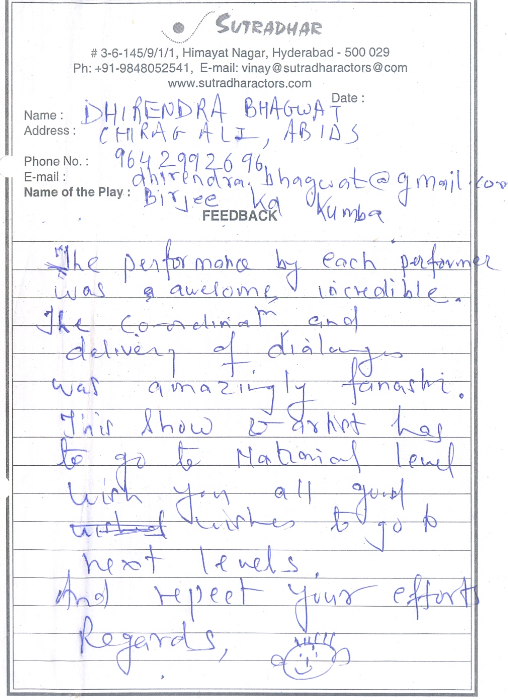 SUTRADHAR
# 3-6-145/9/1/1, Himayat Nagar, Hyderabad - 500 029
Ph: +91-9848052541, E-mail: vinay@sutradharactors@com
www.sutradharactors.com
Date :
Name : DHIRENDRA BHAGWAT
Address : CHIRAG ALI, ABIDS
Phone No. : 9642992696
E-mail : dhirendra.bhagwat@gmail.com
Name of the Play : Birjee Ka Kumba
FEEDBACK
The performance by each performer
was awesome, incredible.
The co-ordinatn and
delivery of dialouges
was amazingly fanasti.
This show & artist has
to go to National level
wish you all good
wishes to go to
next levels.
And repeet your efforts
Regards,